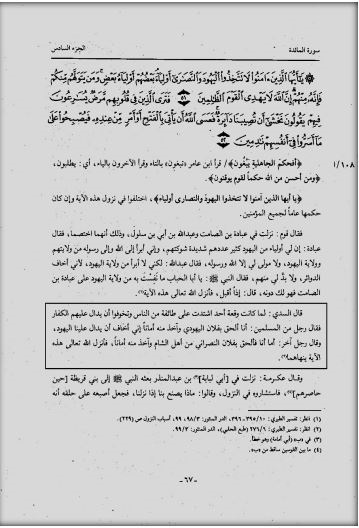 سورة المائدة
الجزء السادس
۞ يَٰٓأَيُّهَا ٱلَّذِينَ ءَامَنُوا۟ لَا تَتَّخِذُوا۟ ٱلْيَهُودَ وَٱلنَّصَٰرَىٰٓ أَوْلِيَآءَ بَعْضُهُمْ أَوْلِيَآءُ بَعْضٍ وَمَن يَتَوَلَّهُم مِّنكُمْ
فَإِنَّهُۥ مِنْهُمْ إِنَّ ٱللَّهَ لَا يَهْدِى ٱلْقَوْمَ ٱلظَّٰلِمِينَ ٥١ فَتَرَى ٱلَّذِينَ فِى قُلُوبِهِم مَّرَضٌ يُسَٰرِعُونَ
فِيهِمْ يَقُولُونَ نَخْشَىٰٓ أَن تُصِيبَنَا دَآئِرَةٌ فَعَسَى ٱللَّهُ أَن يَأْتِىَ بِٱلْفَتْحِ أَوْ أَمْرٍ مِّنْ عِندِهِۦ فَيُصْبِحُوا۟ عَلَىٰ
مَآ أَسَرُّوا۟ فِىٓ أَنفُسِهِمْ نَٰدِمِينَ ٥٢
﴿أفحكمَ الجاهلية يَبْغُون﴾، قرأ ابن عامر «تبغون» بالتاء وقرأ الآخرون بالياء، أي: يطلبون،
١٠٨/١
﴿ومن أحسن من الله حكماً لقوم يوقنون﴾.
﴿يا أيها الذين آمنوا لا تتخذوا اليهود والنصارى أولياء﴾، اختلفوا في نزول هذه الآية وإن كان
حكمها عاماً لجميع المؤمنين.
فقال قوم: نزلت في عبادة بن الصامت وعبدالله بن أبي بن سلول، وذلك أنهما اختصما، فقال
عبادة: إن لي أولياء من اليهود كثير عددهم شديدة شوكتهم، وإني أبرأ إلى الله وإلى رسوله من ولايتهم
وولاية اليهود، ولا مولى لي إلا الله ورسوله، فقال عبدالله: لكني لا أبرأ من ولاية اليهود، لأني أخاف
الدوائر، ولا بدّ لي منهم، فقال النبي ﷺ: يا أبا الحباب ما نَفِسْتَ به من ولاية اليهود على عبادة بن
الصامت فهو لك دونه، قال: إذاً أقبل، فأنزل الله تعالى هذه الآية(١).
قال السدي: لما كانت وقعة أحد اشتدت على طائفة من الناس وتخوفوا أن يدال عليهم الكفار
فقال رجل من المسلمين: أنا ألحق بفلان اليهودي وآخذ منه أماناً إني أخاف أن يدال علينا اليهود،
وقال رجل آخر: أما أنا فألحق بفلان النصراني من أهل الشام وآخذ منه أماناً، فأنزل الله تعالى هذه
الآية ينهاهما(٢).
وقال عكرمة: نزلت في [أبي لبابة](٣) بن عبدالمنذر بعثه النبي ﷺ إلى بني قريظة [حين
حاصرهم](٤)، فاستشاروه في النزول، وقالوا: ماذا يصنع بنا إذا نزلنا، فجعل أصبعه على حلقه أنه
(١) انظر: تفسير الطبري: ٣٩٥/١٠-٣٩٦، الدر المنثور: ٩٨/٣، ٩٩، أسباب النزول ص (٢٢٩).
(٢) انظر: تفسير الطبري: ٢٧٦/٦ (طبع الحلبي)، الدر المنثور: ٩٩/٣.
(٣) في «ب» (أبي أمامة) وهو خطأ.
(٤) ما بين القوسين ساقط من «ب».
-٦٧-